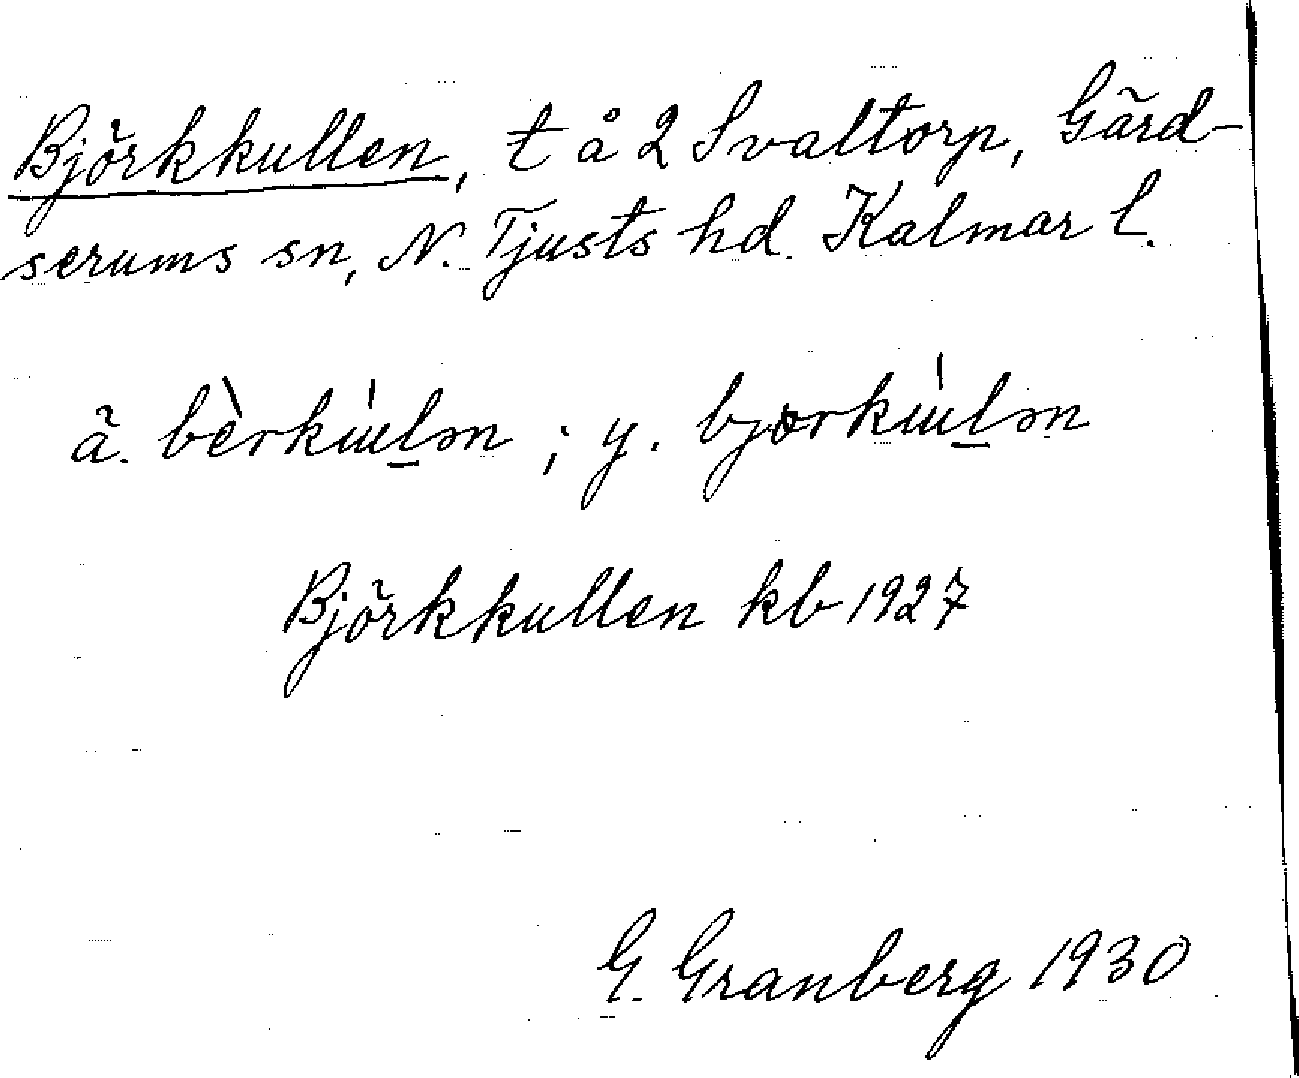 Björkkullen, t å 2 Svaltorp, Gärd-
serums sn, N. Tjusts hd. Kalmar l.
ä. bèrkɯ́lən ; y. bjørkɯ́lən
Björkkullen kb 1927
G. Granberg 1930